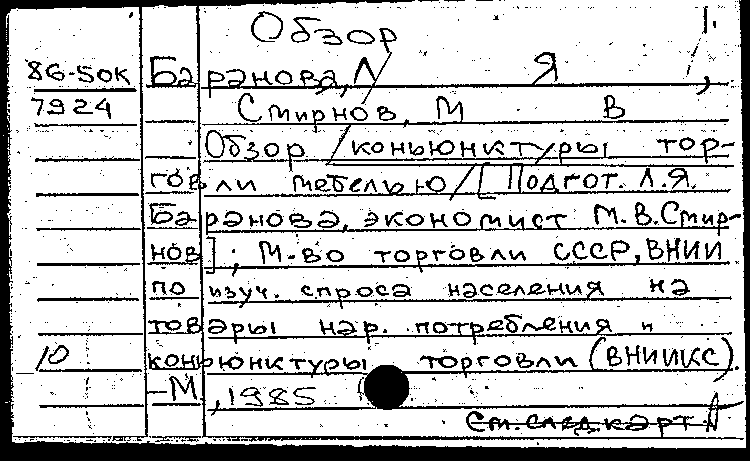 Обзор 1.
86-50к Баранова, Л Я ,
7924 Смирнов, М В
Обзор /конъюнктуры тор-
говли мебелью/ [Подгот. Л.Я.
Баранова, экономист М.В.Смир-
нов] ; М-во торговли СССР, ВНИИ
по изуч. спроса населения на
товары нар. потребления и
10 конъюнктуры торговли (ВНИИКС).
–М., 1985
См. след. карт